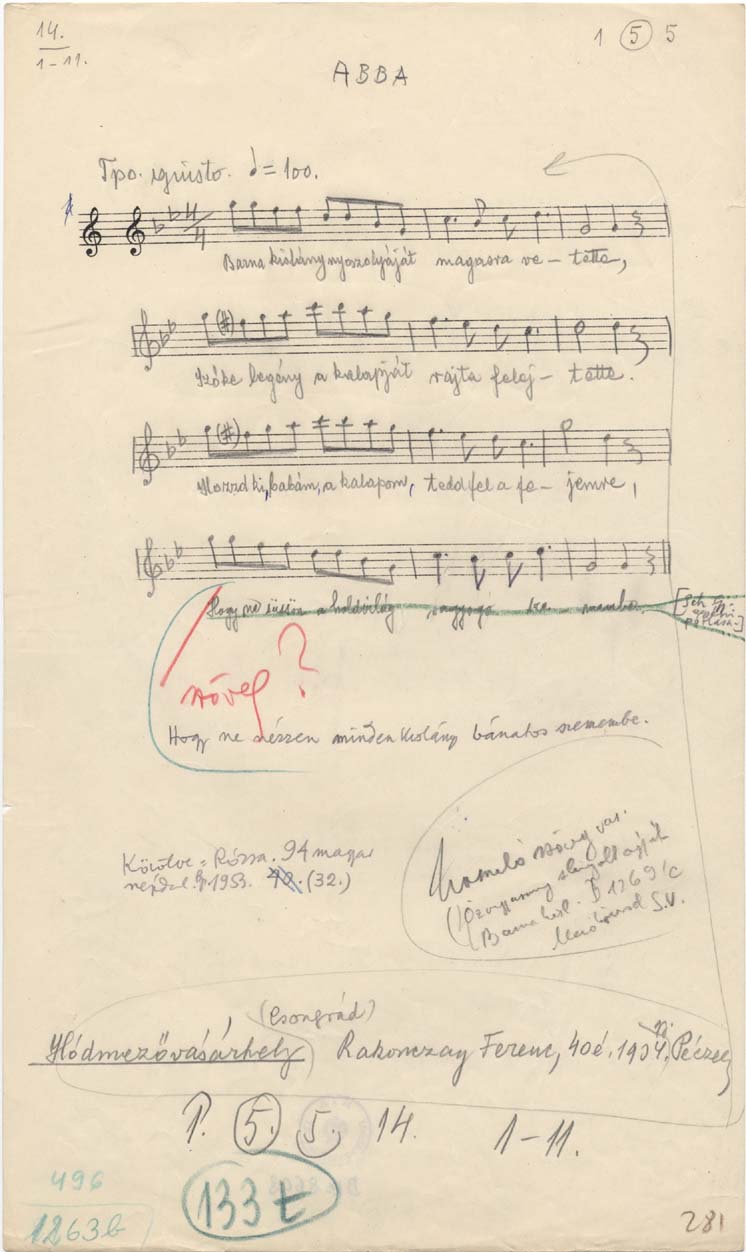 14.
1-11.
1 5 5
ABBA
Tpo. giusto. = 100.
4/4
Barna kislány nyoszolyáját magasra ve- tette,
Szőke legény a kalapját rajta felej- tette.
Hozzd ki, babám, a kalapom, tedd fel a fe- jemre,
Hogy ne süssön a holdvilág ragyogó sze- membe.
szöveg?
Hogy ne nézzen minden kislány bánatos szemembe.
Közölve = Rózsa. 94 magyar
népdal. Bp. 1953. (32.)
szöveg var.
Barna B 1269/c
S.V.
(Csongrád)
Hódmezővásárhely Rakonczay Ferenc, 40é. 1934. Péczely
P. 5. 5. 14. 1-11.
133 t
496
1263b
281